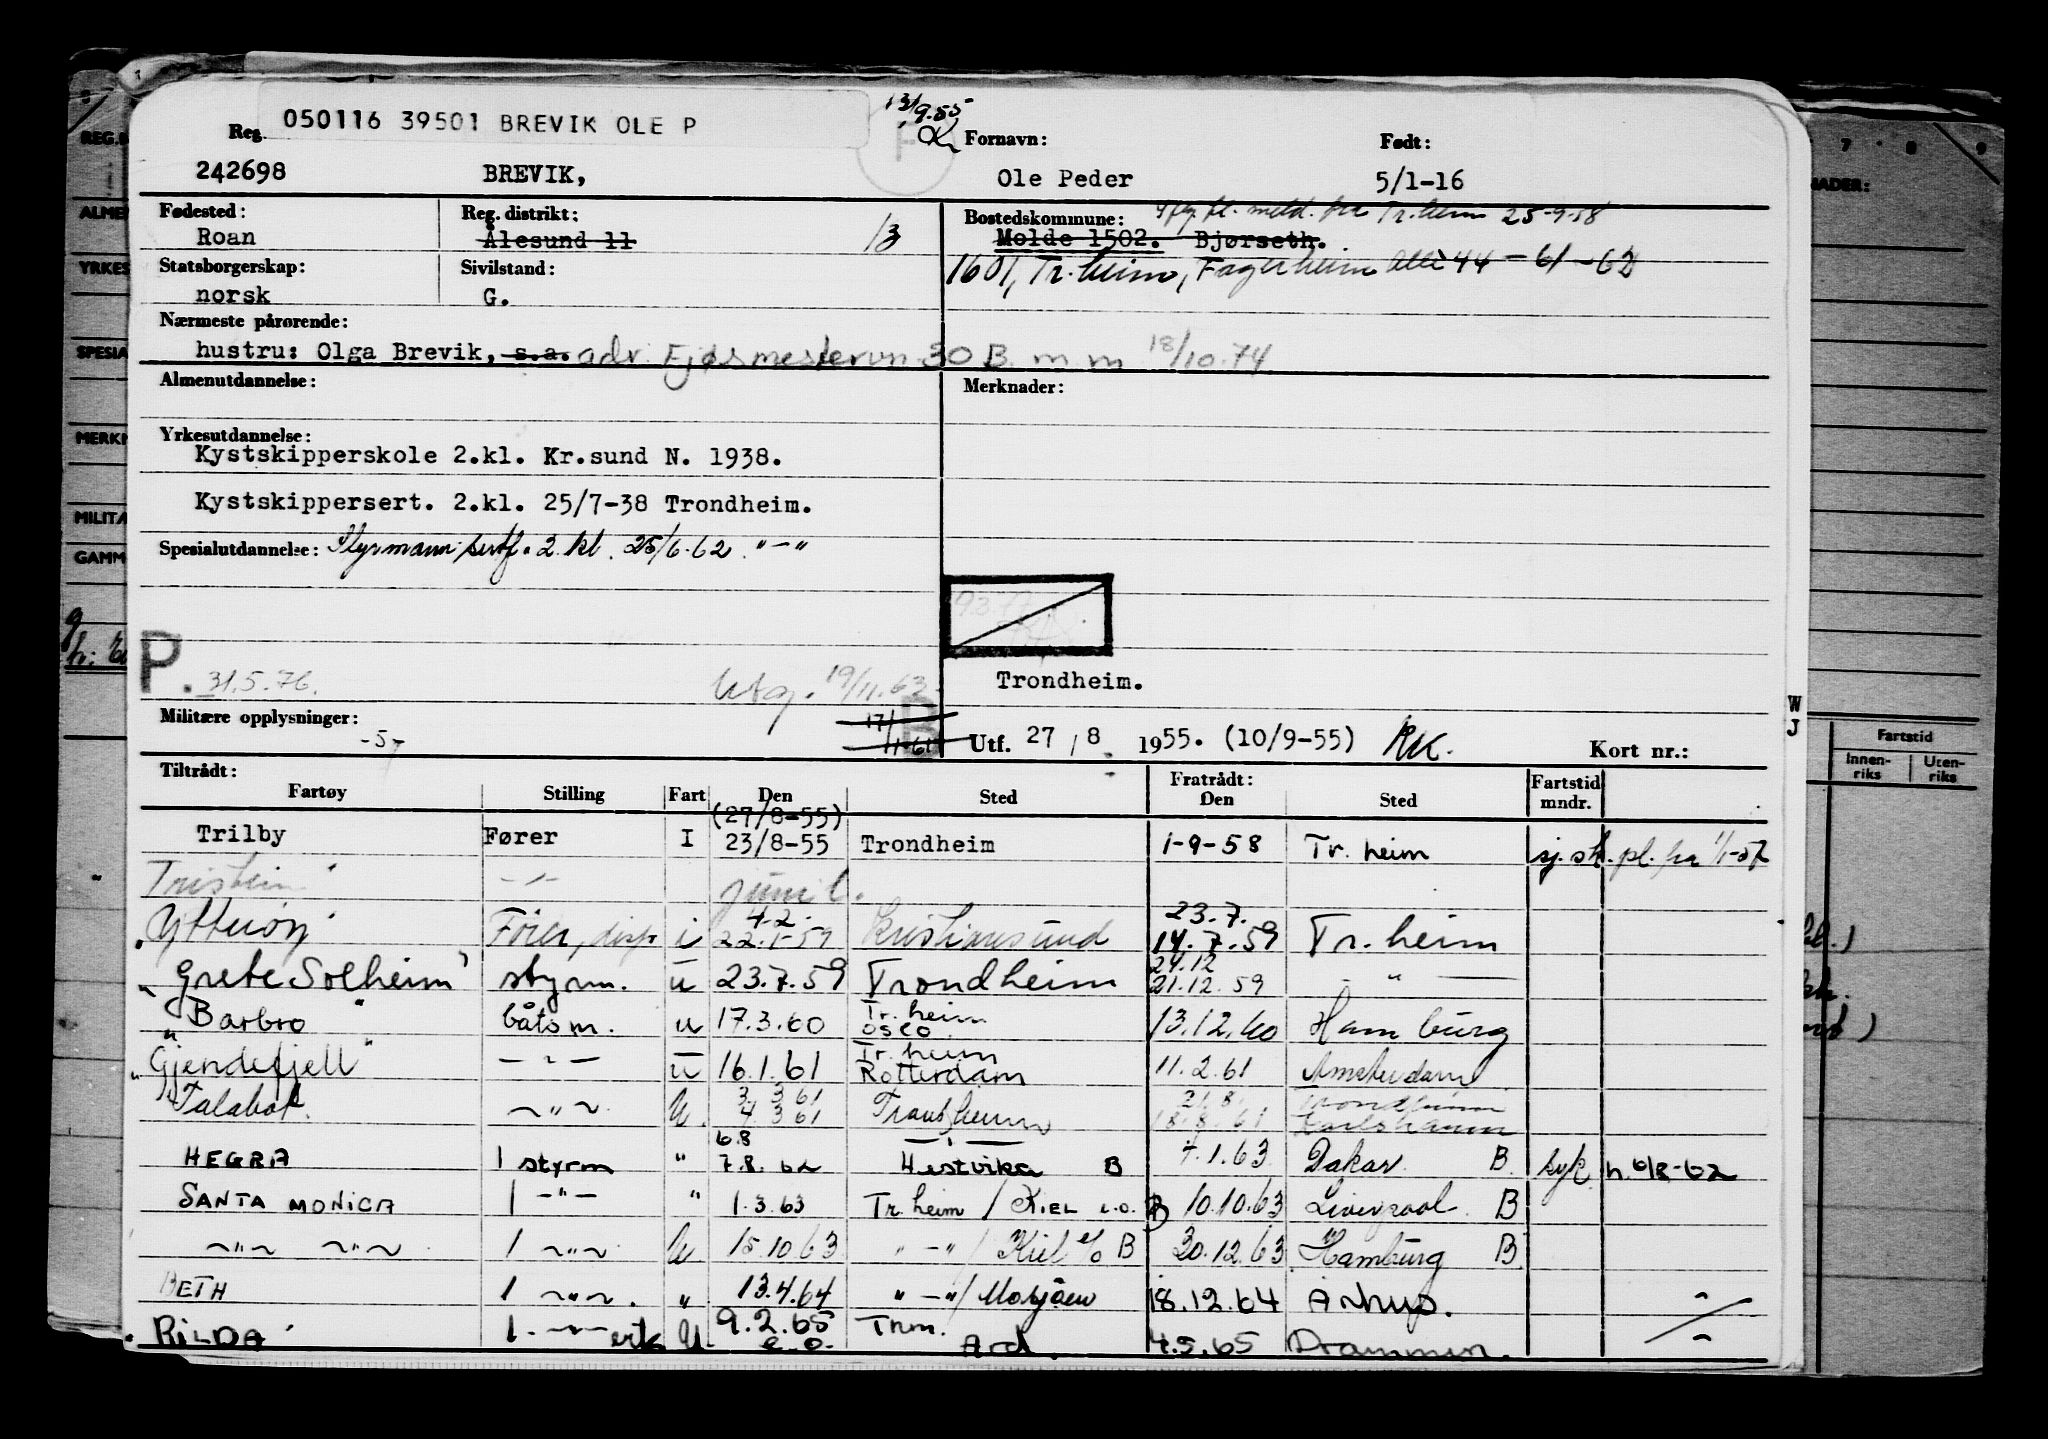 13/9.55
050116 39501 BREVIK OLE P
Reg. Fornavn: Født:
242698 BREVIK, Ole Peder 5/1-16
Fødested: Reg. distrikt: Bostedskommune: fl. meld. fra Tr.heim 25-9-58
Roan Ålesund 11 13 Molde 1502. Bjørseth.
Statsborgerskap: Sivilstand: 1601, Tr.heim, Fagerheim Alle 44 - 61 - 62
norsk G.
Nærmeste pårørende:
hustru: Olga Brevik, s.a. adr. Fjøsmestervn. 30 B. m m 18/10.74
Almenutdannelse: Merknader:
Yrkesutdannelse:
Kystskipperskole 2.kl. Kr.sund N. 1938.
Kystskippersert. 2.kl. 25/7-38 Trondheim.
Spesialutdannelse: Styrmann sertf. 2 kl. 25/6.62 "-"
P. 31.5.76. Utg. 19/11.63
Trondheim.
Militære opplysninger: 17/11-61 B
-5- Utf. 27/8 1955. (10/9-55) RK. Kort nr.:
W
J
Tiltrådt: Fratrådt: Fartstid
Fartøy Stilling Fart Den Sted Den Sted mndr.
(27/8-55)
Trilby Fører I 23/8-55 Trondheim 1-9-58 Tr.heim sj.sk. pl. fra 1/1-57
Tristein -"- juni
4.2. 23.7.
"Ytterøy" Fører, disp i 22.1-59 Kristiansund 14.7.59 Tr.heim
24.12
"Grete Solheim" styrm. u 23.7.59 Trondheim 21.12.59 - " -
Tr.heim
"Barbro" båtsm. u 17.3.60 Oslo 13.12.60 Hamburg
Tr.heim
"Gjendefjell" -"- u 16.1.61 Rotterdam 11.2.61 Amsterdam
3 3 61 21.8. Trondheim
"Talabot" -"- U. 4 3 61 Trondheim 18.8.61 Karlshamn
6.8
HEGRA 1 styrm " 7.8.62 Hestvika B 7.1.63 Dakar B syk h. 6/8-62
SANTA MONICA 1 -"- " 1.3.63 Tr.heim / KIEL e.o. B 10.10.63 Liverpool B
-"- -"- 1 -"- U 15.10.63 " - " / Kiel e/o B 20.12.63 Hamburg B
BETH 1 -"-. " 13.4.64 " - " / Mosjøen 18.12.64 Århus.
RILDA 1. -"- U. 9.2.65 Trm. 4.5.65 Drammen.
e.o. Ard.
REG.N
ALMEN
YRKES
SPESIA
MERKN
MILITÆ
GAMM
7 8 9
NADER:
Fartstid
Innen-riks Uten-riks